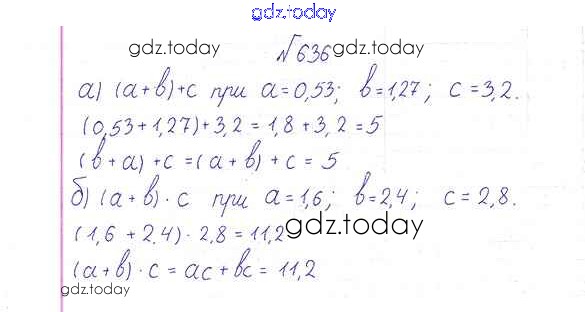 gdz.today
gdz.today №636 gdz.today
а) (а+в)+с при а=0,53; в=1,27; с=3,2.
(0,53+1,27)+3,2=1,8+3,2=5
(в+а)+с=(а+в)+с=5
б) (а+в)·с при а=1,6; в=2,4; с=2,8.
(1,6+2,4)·2,8=11,2 gdz.today
(а+в)·с=ас+вс=11,2
gdz.today